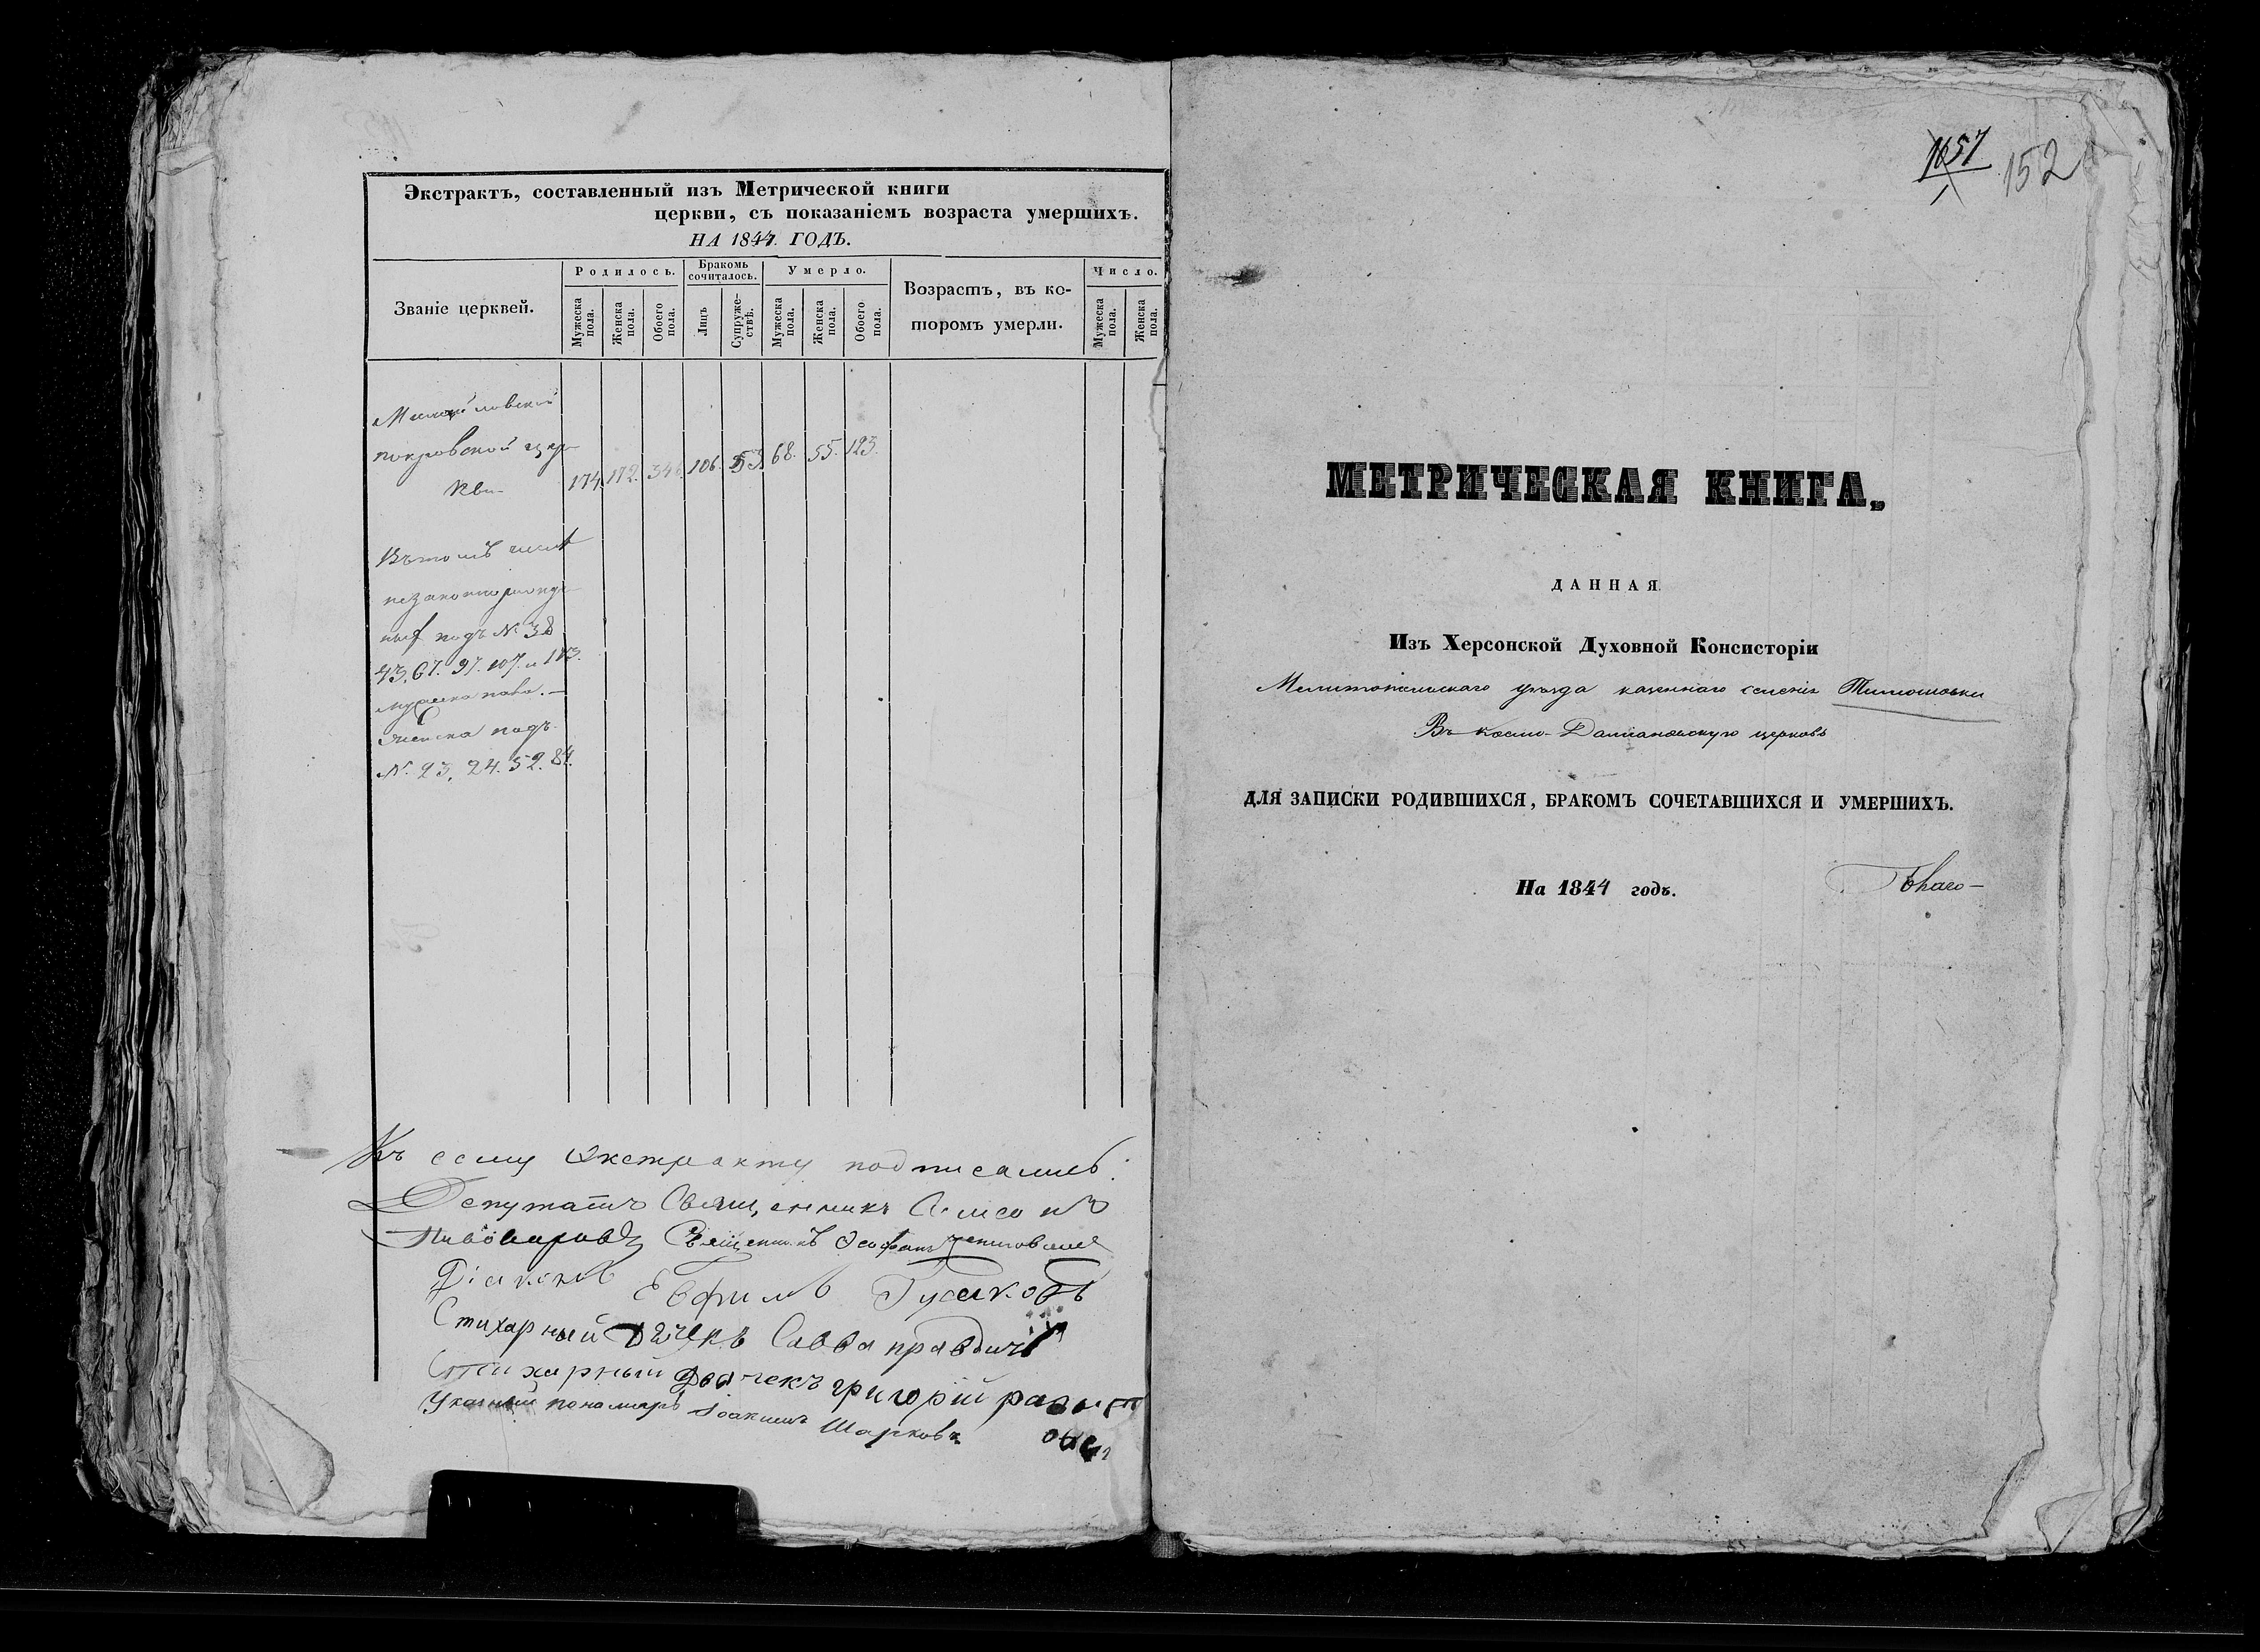 Экстрактъ, составленный изъ Метрической книги
церкви, съ показаніемъ возраста умершихъ.
НА 1844. ГОДЪ.
Званіе церквей.
Родилось.
Бракомъ сочиталось.
Умерло.
Возрастъ, въ которомъ умерли.
Число.
Мужеска пола.
Женска пола.
Обоего пола.
Лицъ
Супружествъ.
Мужеска пола.
Женска пола.
Обоего пола.
Мужеска пола.
Женска пола.
Михайловской
покровской цер-
кви-
174. 172. 346. 106. 53 68. 55. 123.
Въ томъ числѣ
незаконнорожде-
ных подъ № 38
43. 67. 97. 107. и 113.
мужеска пола.—
Женска подъ
№. 23, 24. 52. 84.
Къ сему Экстракту подписались:
Депутатъ Священникъ Симеонъ
Пивоваровъ Священникъ Феофанъ
Діаконъ Евфимъ Гусаковъ
Стихарный дячекъ Савва правдичъ
Стихарный дьячекъ григорій
Указный пономарь Іоакимъ Шарковъ
1051
152
МЕТРИЧЕСКАЯ КНИГА,
ДАННАЯ
Изъ Херсонской Духовной Консисторіи
Мелитопольскаго уѣзда казеннаго селенія Тимошовки
Въ Космо-Даміановскую церковь
ДЛЯ ЗАПИСКИ РОДИВШИХСЯ, БРАКОМЪ СОЧЕТАВШИХСЯ И УМЕРШИХЪ.
На 1844 годъ.